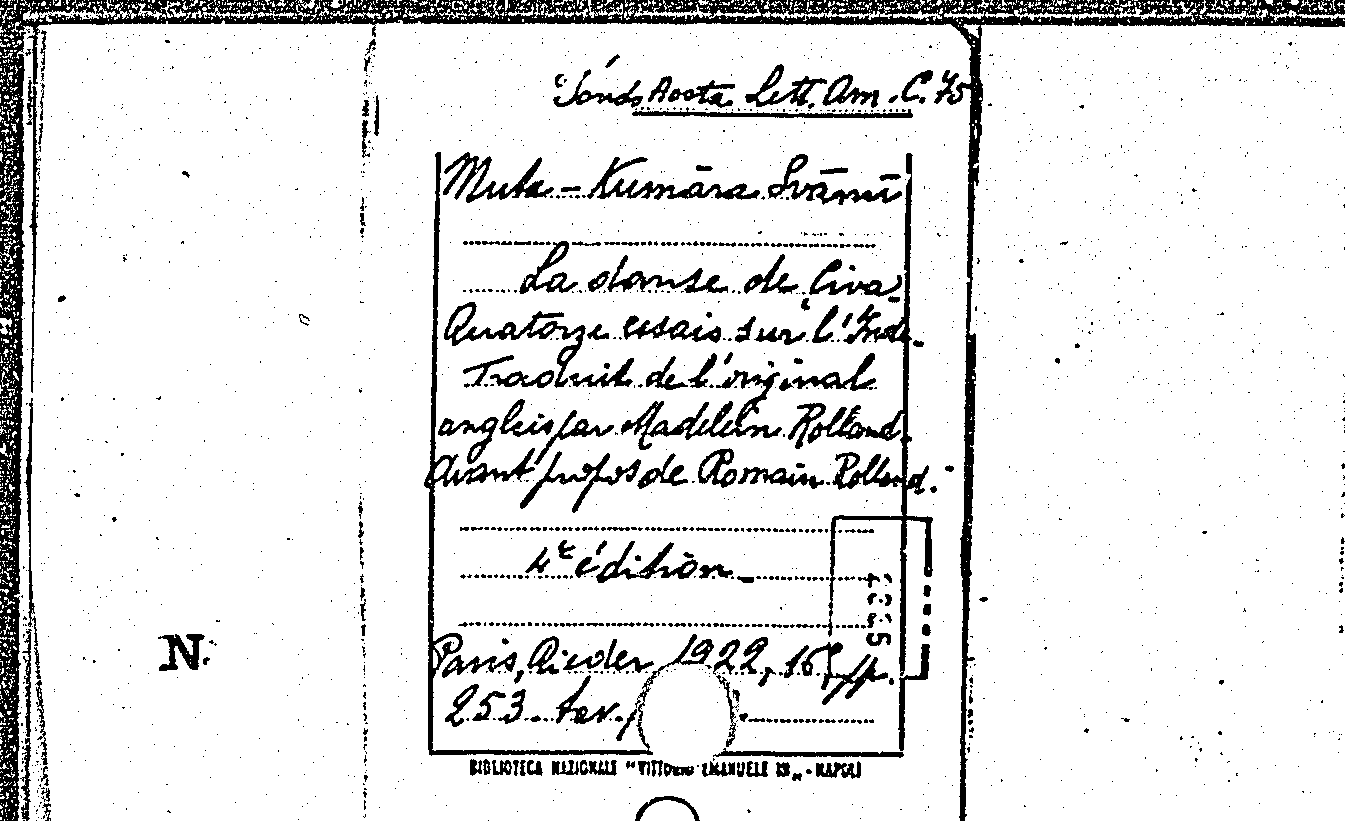 Fondo Aosta Lett. Am. C. 75
Muta-Kumāra Svāmī
La danse de Çiva.
Quatorze essais sur l'Inde.
Traduit de l'original
anglais par Madelein Rolland.
Avant propos de Romain Rolland.
4e édition
Paris, Rieder 1922, 16°, pp.
253. tav.
BIBLIOTECA NAZIONALE "VITTORIO EMANUELE III„ - NAPOLI
N.